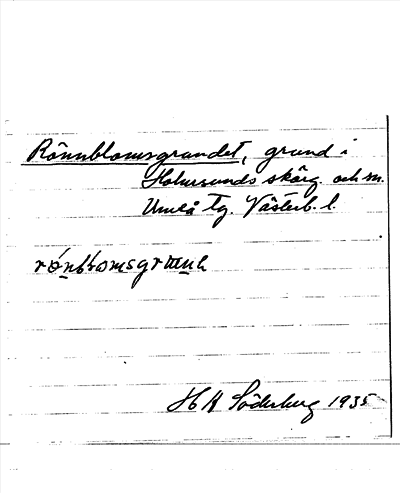 Rönnblomsgrundet, grund i
Holmsunds skärg. och m.
Umeå tg. Västerb. l.
H K Söderberg 1935